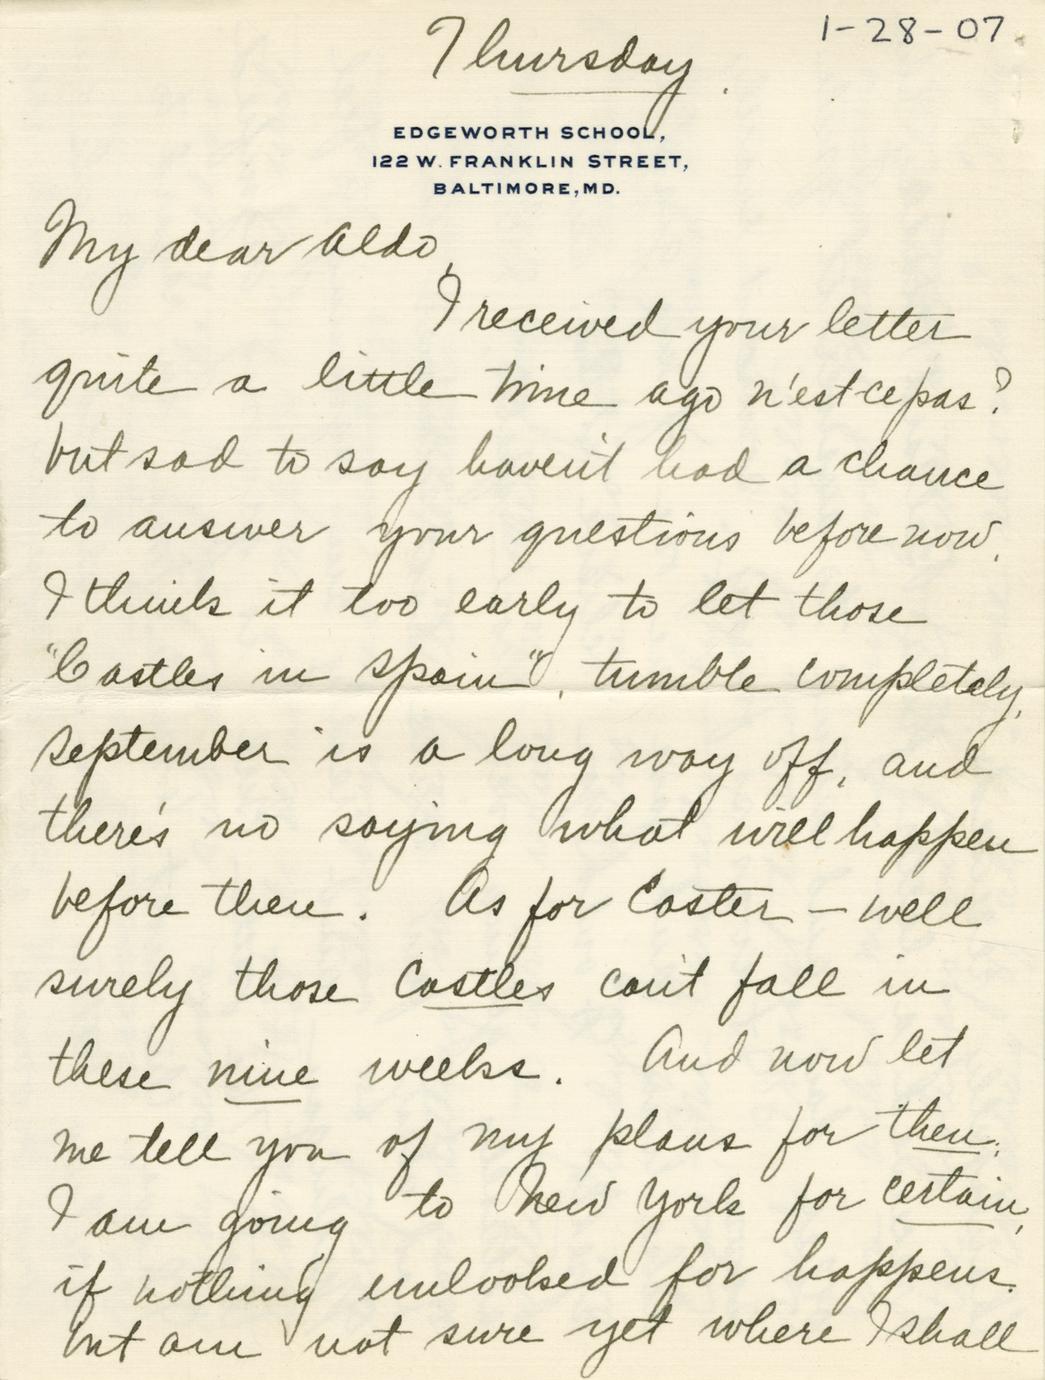 1-28-07
Thursday.
EDGEWORTH SCHOOL,
122 W. FRANKLIN STREET,
BALTIMORE, MD.
My dear Aldo,
I received your letter
quite a little time ago n'est-ce pas?
but sad to say haven't had a chance
to answer your questions before now.
I think it too early to let those
"Castles in Spain", tumble completely,
September is a long way off, and
there's no saying what will happen
before then. As for Easter — well
surely those Castles can't fall in
these nine weeks. And now let
me tell you of my plans for then.
I am going to New York for certain,
if nothing unlooked for happens.
but am not sure yet where I shall